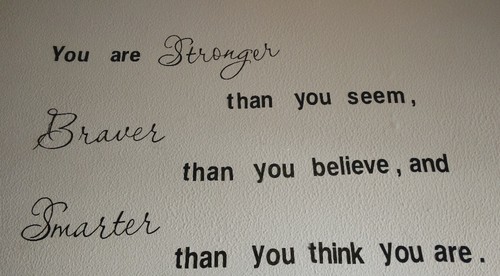 You are Stronger
than you seem,
Braver
than you believe, and
Smarter
than you think you are.